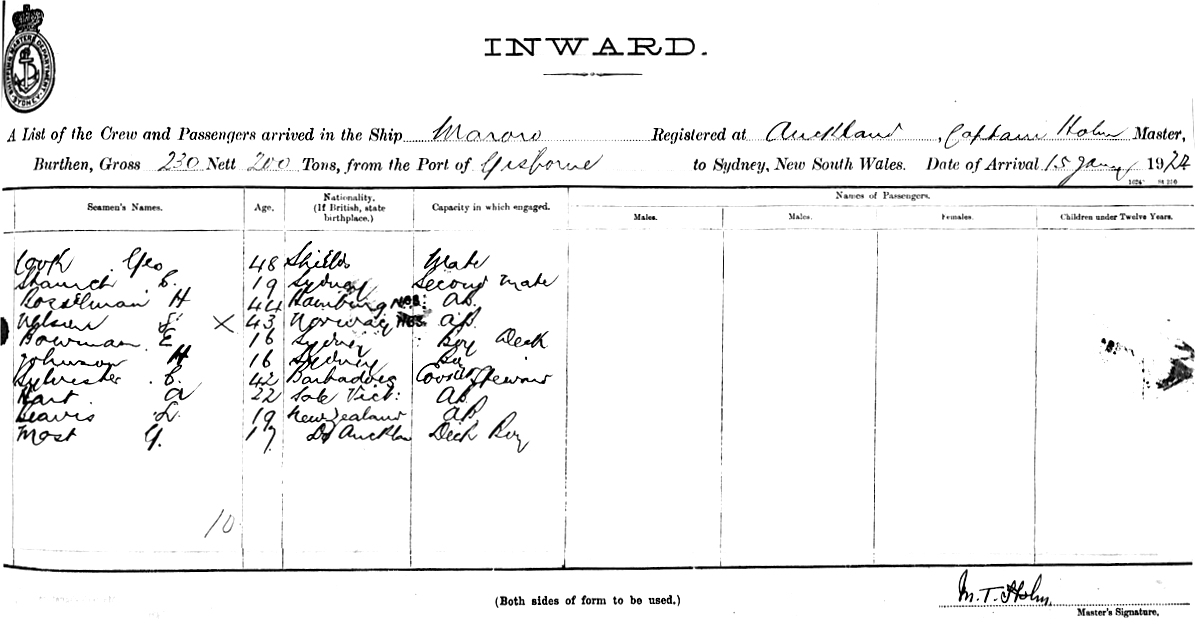 SHIPPING MASTERS DEPARTMENT SYDNEY
INWARD.
A List of the Crew and Passengers arrived in the Ship Maroro Registered at Auckland, Captain Holm Master,
Burthen, Gross 230 Nett 200 Tons, from the Port of Gisborne to Sydney, New South Wales. Date of Arrival 15 Jany 1924
Seamen's Names. Age. Nationality. (If British, state birthplace.) Capacity in which engaged. Names of Passengers.
Males. Males. Females. Children under Twelve Years.
Cook Geo 48 Shields Mate
C. 19 Sydney Second Mate
H 44 Hamburg A.B.
X 43 Norway A.B.
Bowman E 16 Sydney Boy Deck
Johnson H 16 Sydney Boy
Sylvester C. 42 Barbadoes Cook & Steward
Hart A 22 Vict: A.B.
L. 19 New Zealand A.B.
Most G. 17 Do Deck Boy
10
(Both sides of form to be used.)
M.T. Holm
Master's Signature.